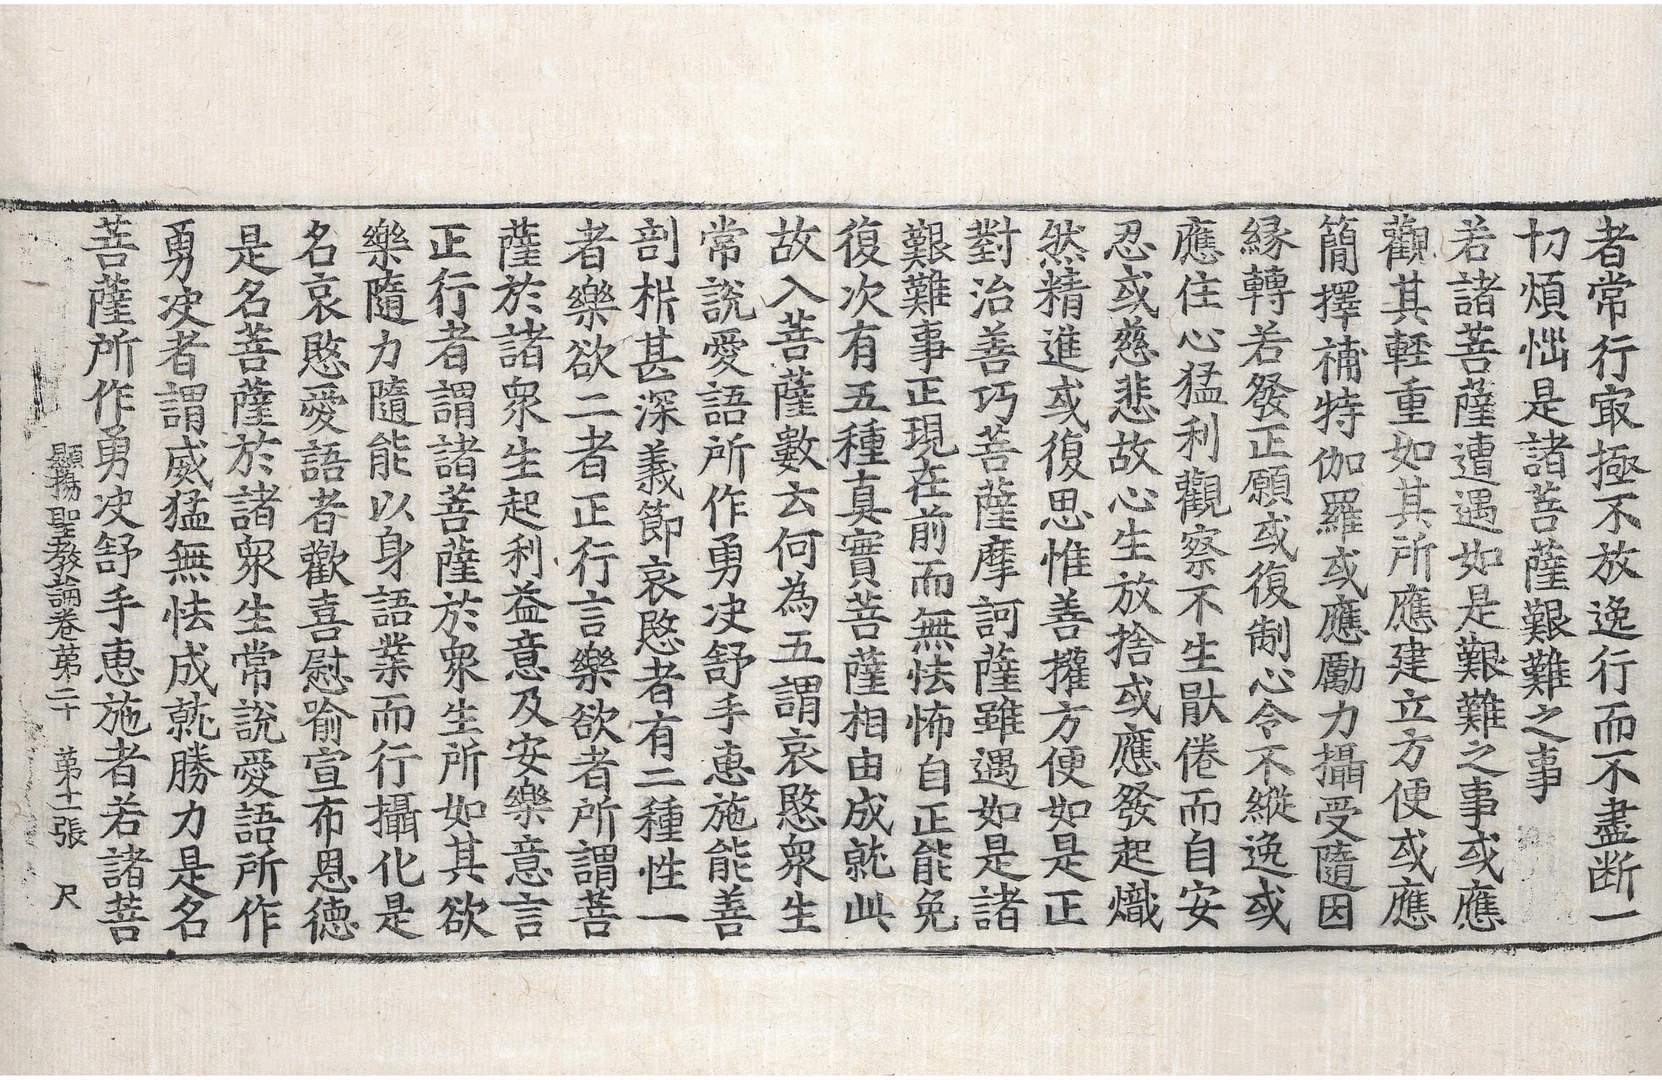 者常行㝡極不放逸行而不盡断一
切煩惱是諸菩薩艱難之事
若諸菩薩遭遇如是艱難之事或應
觀其輕重如其所應建立方便或應
簡擇補特伽羅或應勵力攝受隨因
緣轉若發正願或復制心令不縱逸或
應住心猛利觀察不生猒倦而自安
忍或慈悲故心生放捨或應發起熾
然精進或復思惟善權方便如是正
對治善巧菩薩摩訶薩雖遇如是諸
艱難事正現在前而無怯怖自正能免
復次有五種真實菩薩相由成就此
故入菩薩數云何為五謂哀愍眾生
常說愛語所作勇决舒手惠施能善
剖析甚深義節哀愍者有二種性一
者樂欲二者正行言樂欲者所謂菩
薩於諸眾生起利益意及安樂意言
正行者謂諸菩薩於眾生所如其欲
樂隨力隨能以身語業而行攝化是
名哀愍愛語者歡喜慰喻宣布恩德
是名菩薩於諸眾生常說愛語所作
勇决者謂威猛無怯成就勝力是名
菩薩所作勇决舒手惠施者若諸菩
顯揚聖教論卷第二十 第十一張 尺